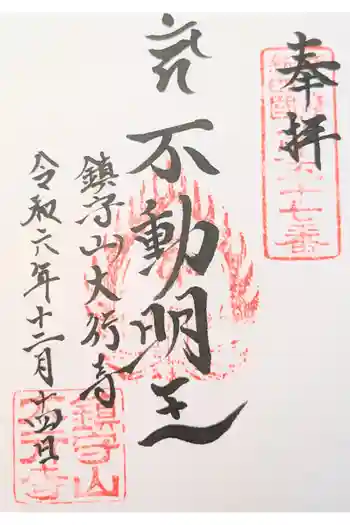 奉拝
不動明王
鎮守山大行寺
令和六年十二月十四日
鎮守山